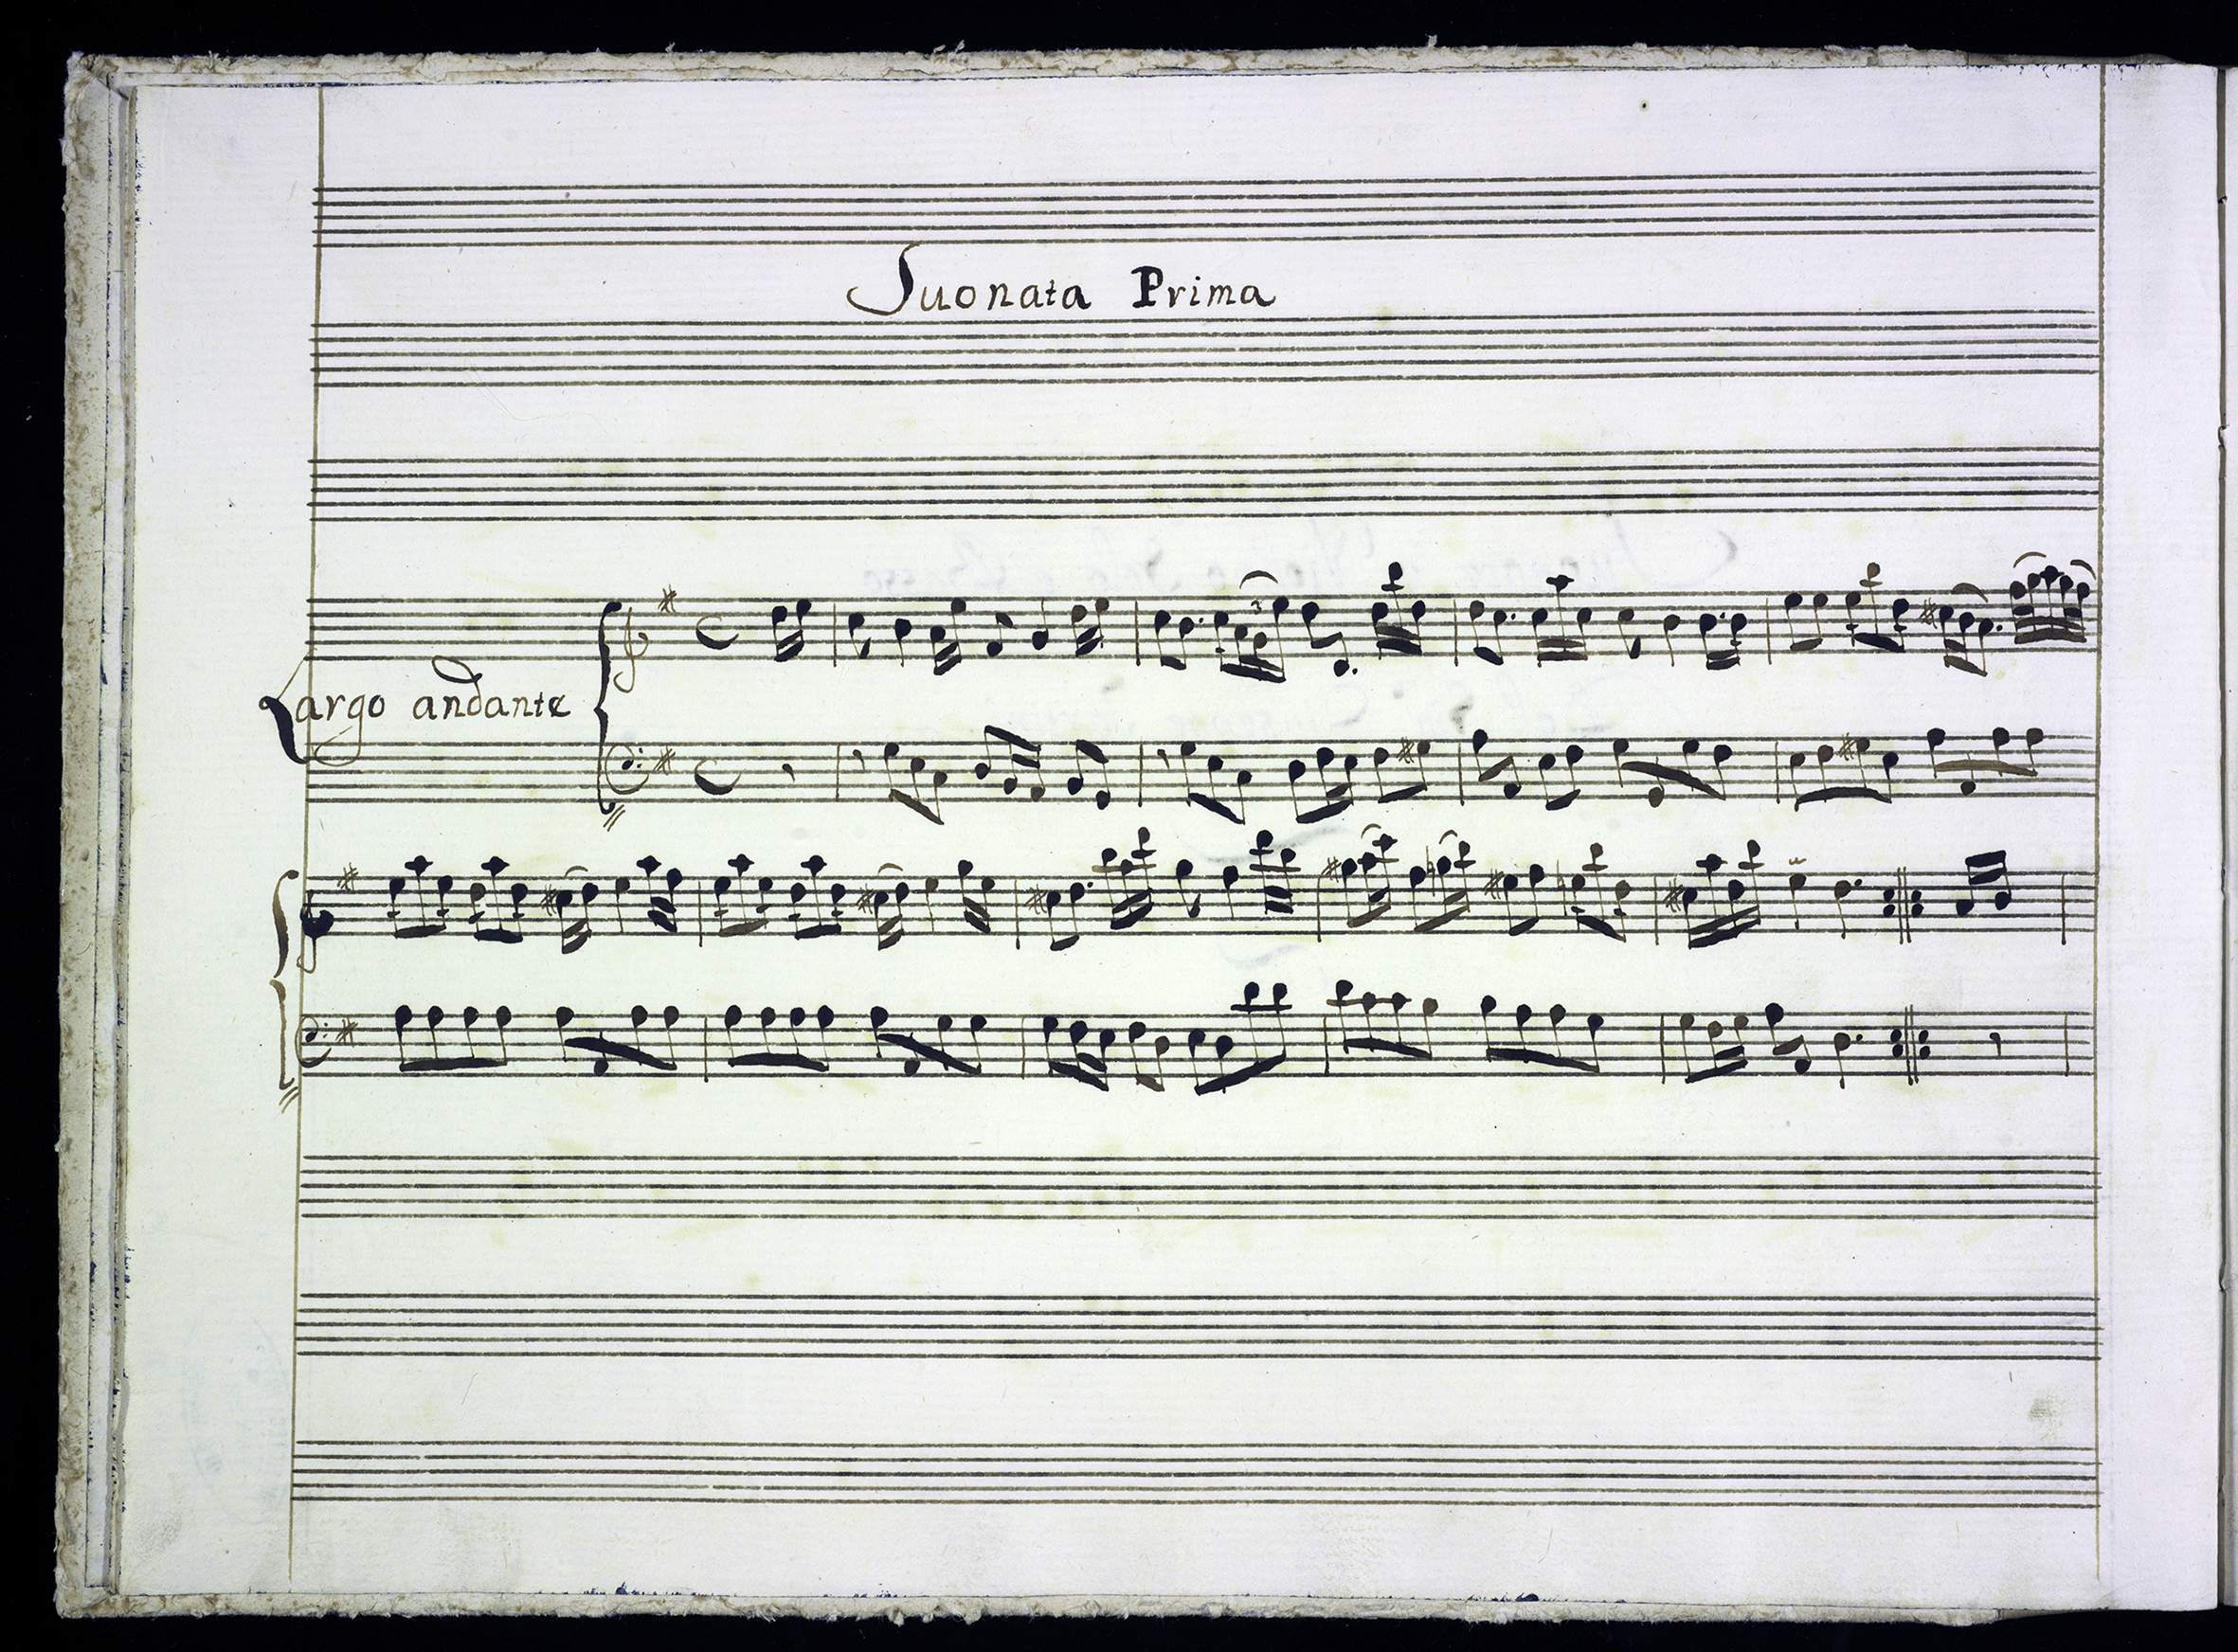 Suonata Prima
Largo andante
3